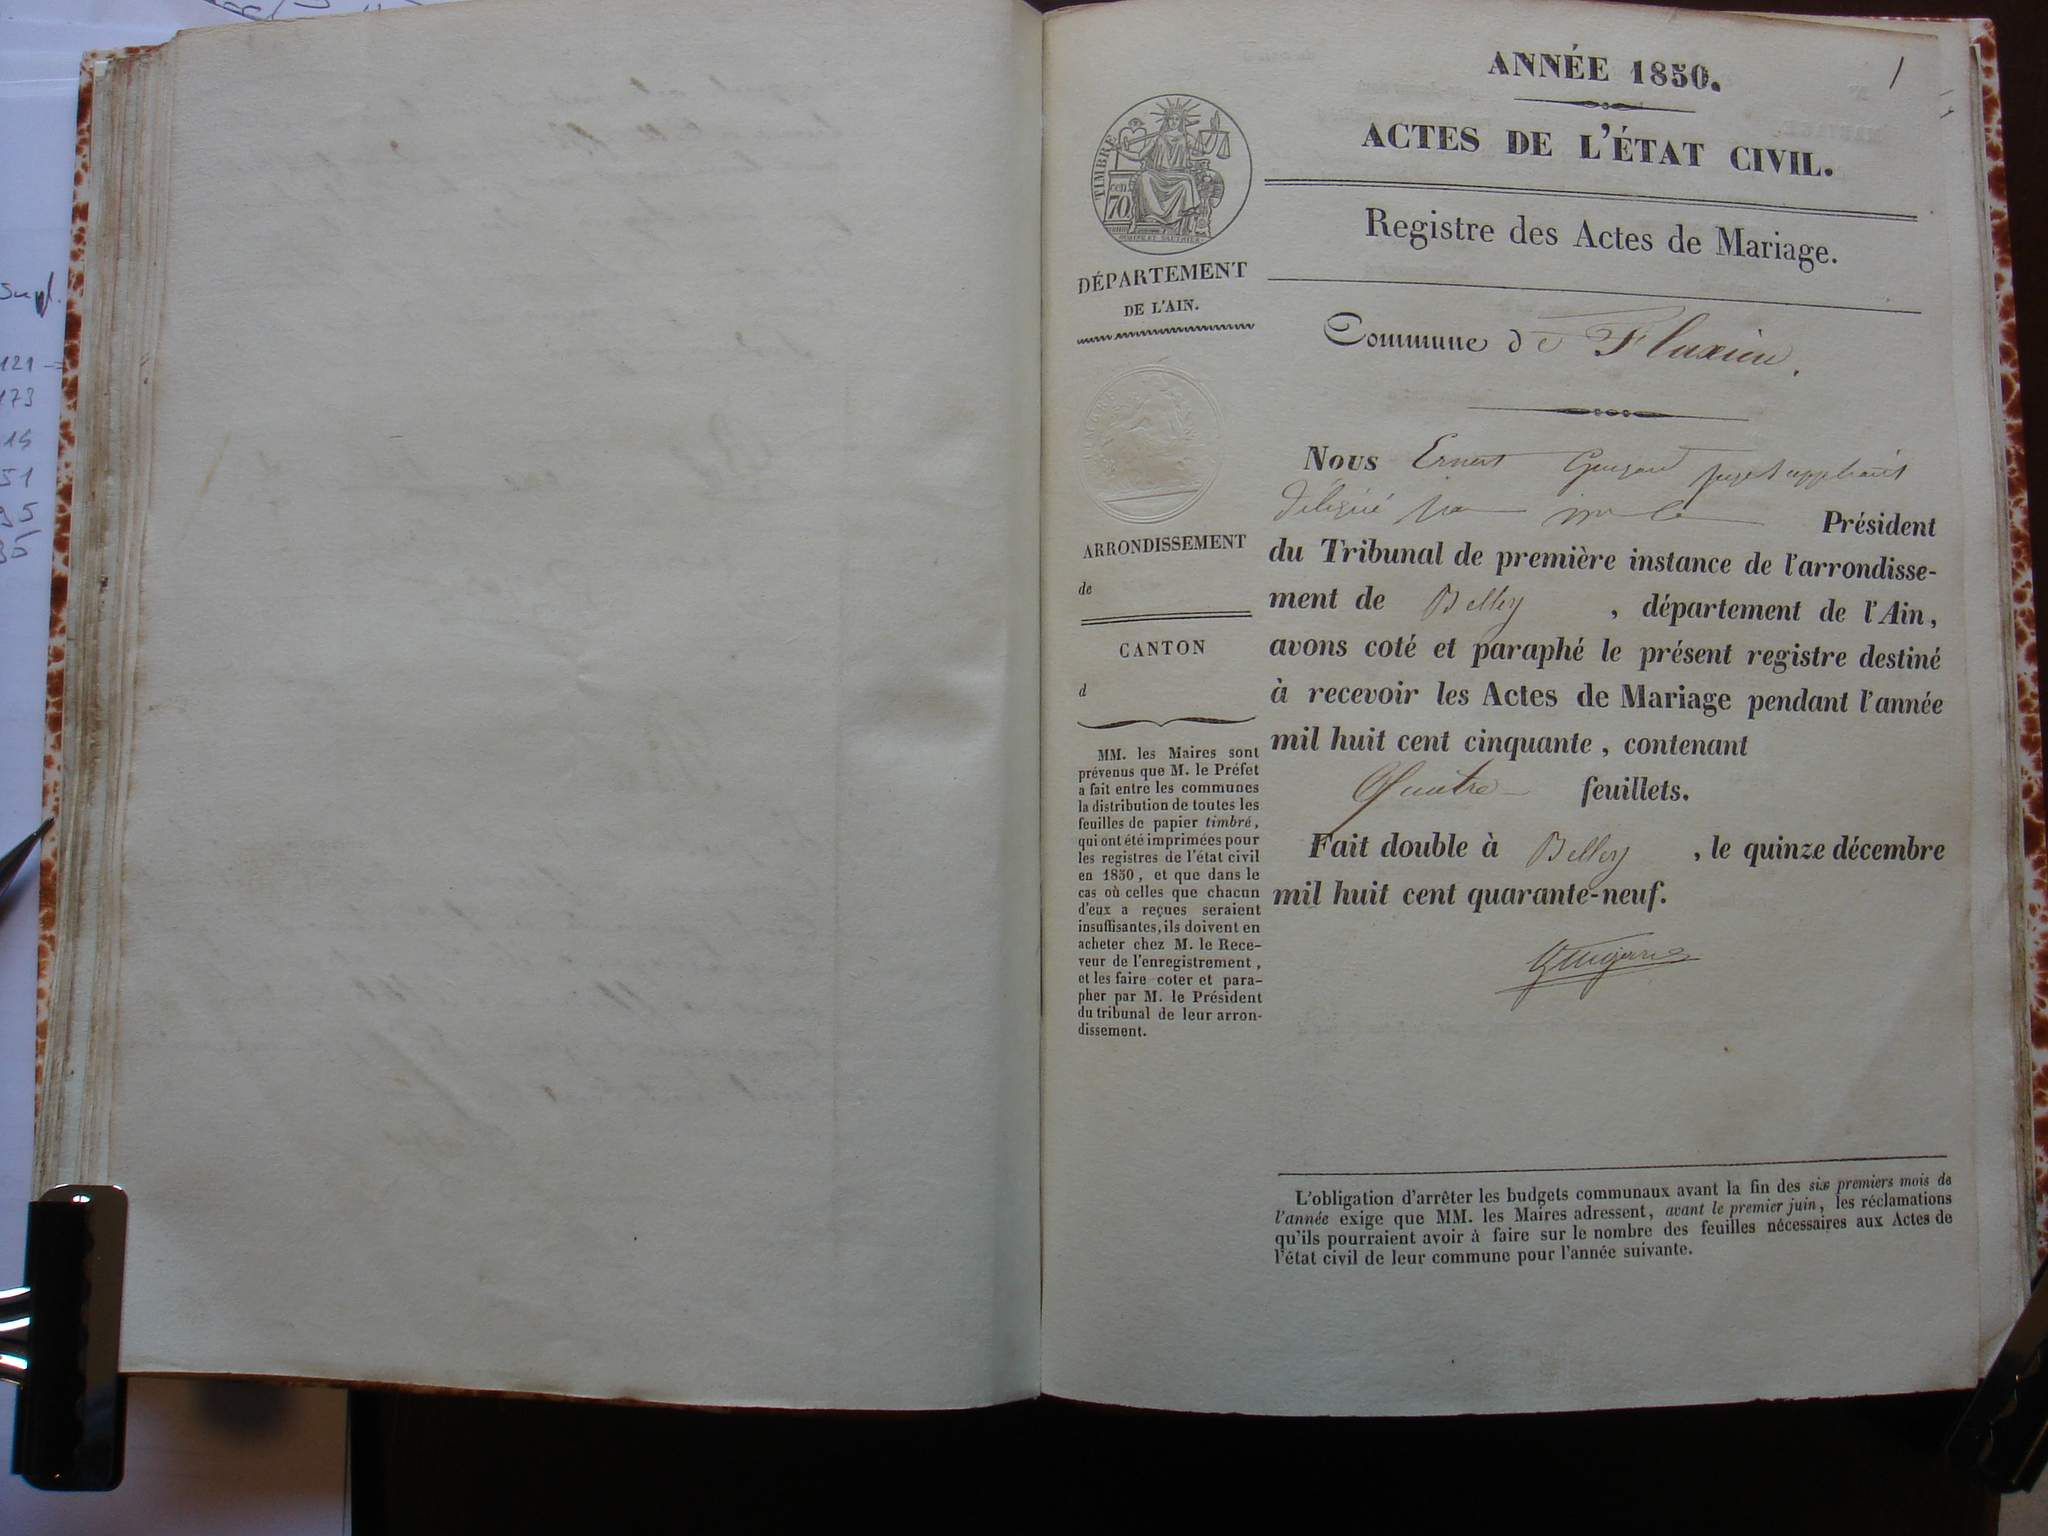 Supl.
121
173
15
51
95
ANNÉE 1850.
1
ACTES DE L'ÉTAT CIVIL.
Registre des Actes de Mariage.
TIMBRE
cen
70
DÉPARTEMENT
DE L'AIN.
Commune de Flaxieu.
Nous Ernest juge suppléant
délégué par mr le Président
du Tribunal de première instance de l'arrondisse-
ment de Belley , département de l'Ain,
avons coté et paraphé le présent registre destiné
à recevoir les Actes de Mariage pendant l'année
mil huit cent cinquante, contenant
Quatre feuillets.
Fait double à Belley , le quinze décembre
mil huit cent quarante-neuf.
ARRONDISSEMENT
de
CANTON
d
MM. les Maires sont
prévenus que M. le Préfet
a fait entre les communes
la distribution de toutes les
feuilles de papier timbré,
qui ont été imprimées pour
les registres de l'état civil
en 1850, et que dans le
cas où celles que chacun
d'eux a reçues seraient
insuffisantes, ils doivent en
acheter chez M. le Rece-
veur de l'enregistrement,
et les faire coter et para-
pher par M. le Président
du tribunal de leur arron-
dissement.
L'obligation d'arrêter les budgets communaux avant la fin des six premiers mois de
l'année exige que MM. les Maires adressent, avant le premier juin, les réclamations
qu'ils pourraient avoir à faire sur le nombre des feuilles nécessaires aux Actes de
l'état civil de leur commune pour l'année suivante.